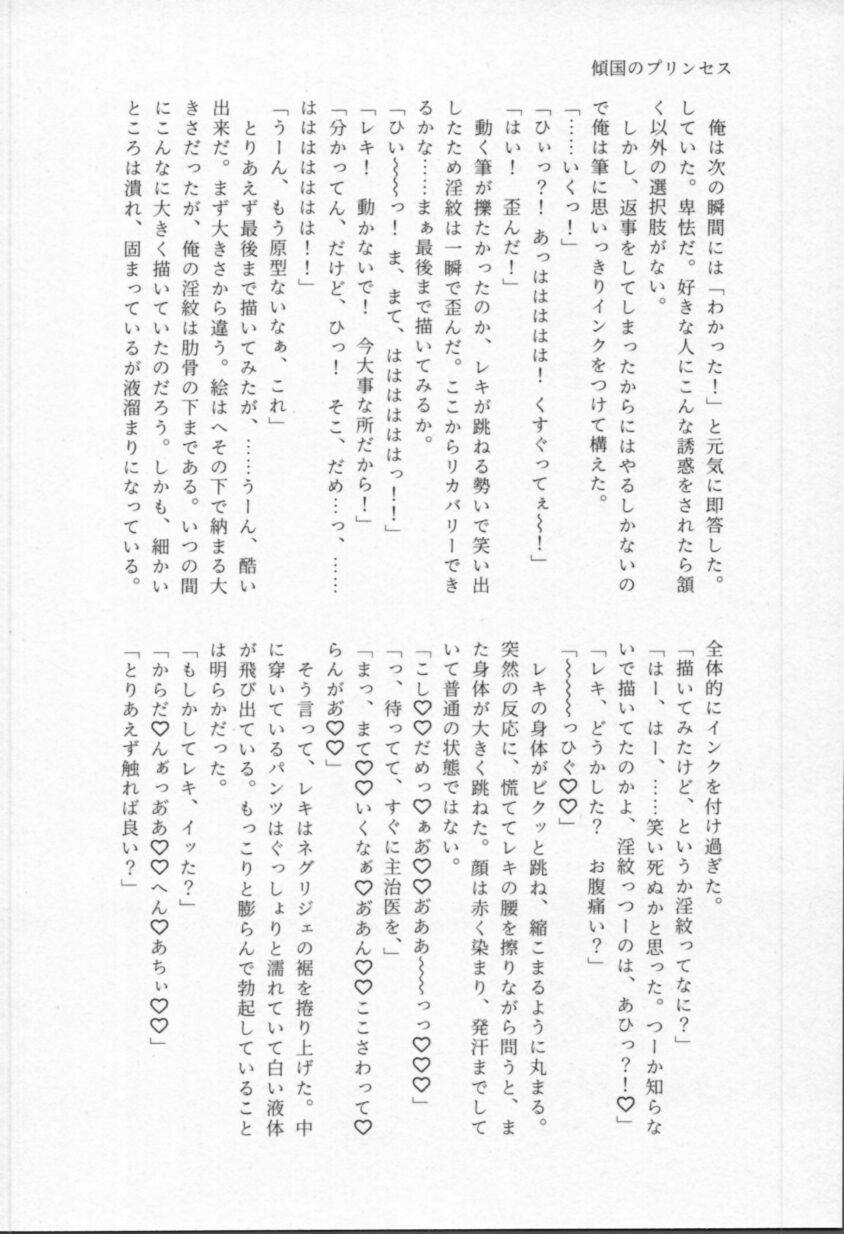 傾国のプリンセス
　俺は次の瞬間には「わかった！」と元気に即答した。
していた。卑怯だ。好きな人にこんな誘惑をされたら頷
く以外の選択肢がない。
　しかし、返事をしてしまったからにはやるしかないの
で俺は筆に思いっきりインクをつけて構えた。
「……いくっ！」
「ひぃっ？！　あっはははは！くすぐってぇ〜！」
「はい！　歪んだ！」
　動く筆が擽たかったのか、レキが跳ねる勢いで笑い出
したため淫紋は一瞬で歪んだ。ここからリカバリーでき
るかな……まぁ最後まで描いてみるか。
「ひい〜〜〜っ！　ま、まて、はははははっ！！」
「レキ！　動かないで！　今大事な所だから！」
「分かってん、だけど、ひっ！　そこ、だめ…っ、……
はははははは！！」
「うーん、もう原型ないなぁ、これ」
　とりあえず最後まで描いてみたが、……うーん、酷い
出来だ。まず大きさから違う。絵はへその下で納まる大
きさだったが、俺の淫紋は肋骨の下まである。いつの間
にこんなに大きく描いていたのだろう。しかも、細かい
ところは潰れ、固まっているが液溜まりになっている。
全体的にインクを付け過ぎた。
「描いてみたけど、というか淫紋ってなに？」
「はー、はー、……笑い死ぬかと思った。つーか知らな
いで描いてたのかよ、淫紋っつーのは、あひっ？！♡」
「レキ、どうかした？　お腹痛い？」
「〜〜〜〜っひぐ♡♡」
　レキの身体がビクッと跳ね、縮こまるように丸まる。
突然の反応に、慌ててレキの腰を擦りながら問うと、ま
た身体が大きく跳ねた。顔は赤く染まり、発汗までして
いて普通の状態ではない。
「こし♡♡だめっ♡ぁあ゙♡♡あ゙ああ〜〜っっ♡♡♡」
「っ、待ってて、すぐに主治医を、」
「まっ、まて♡♡いくなぁ♡あ゙あん♡♡ここさわって♡
らんがあ゙♡♡」
　そう言って、レキはネグリジェの裾を捲り上げた。中
に穿いているパンツはぐっしょりと濡れていて白い液体
が飛び出ている。もっこりと膨らんで勃起していること
は明らかだった。
「もしかしてレキ、イッた？」
「からだ♡んぁっあ゙あ♡♡へん♡あちぃ♡♡」
「とりあえず触れば良い？」